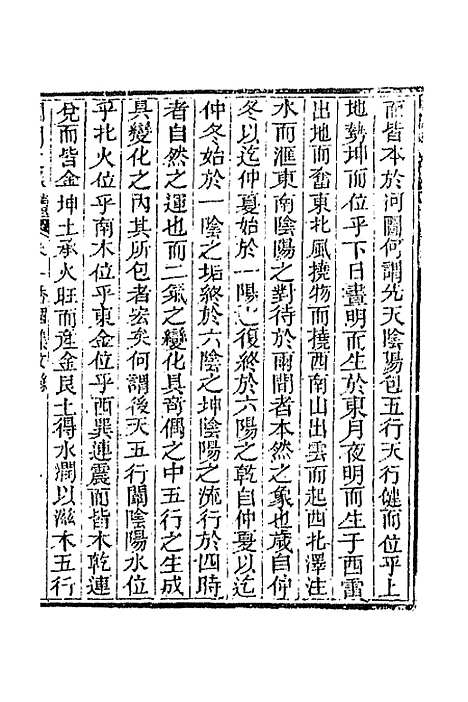 而皆本於河圖何謂先天陰陽包五行天行健而位乎上
地勢坤而位乎下日晝明而生於東月夜明而生于西雷
出地而奮東北風撓物而撓西南山出雲而起西北澤注
水而滙東南陰陽之對待於兩間者本然之象也歲自仲
冬以迄仲夏始於一陽之復終於六陽之乾自仲夏以迄
仲冬始於一陰之垢終於六陰之坤陰陽之流行於四時
者自然之運也而二氣之變化具竒偶之中五行之生成
具變化之內其所包者宏矣何謂後天五行闡陰陽水位
乎北火位乎南木位乎東金位乎西巽連震而皆木乾連
兌而皆金坤土承火旺而產金艮土得水潤以滋木五行